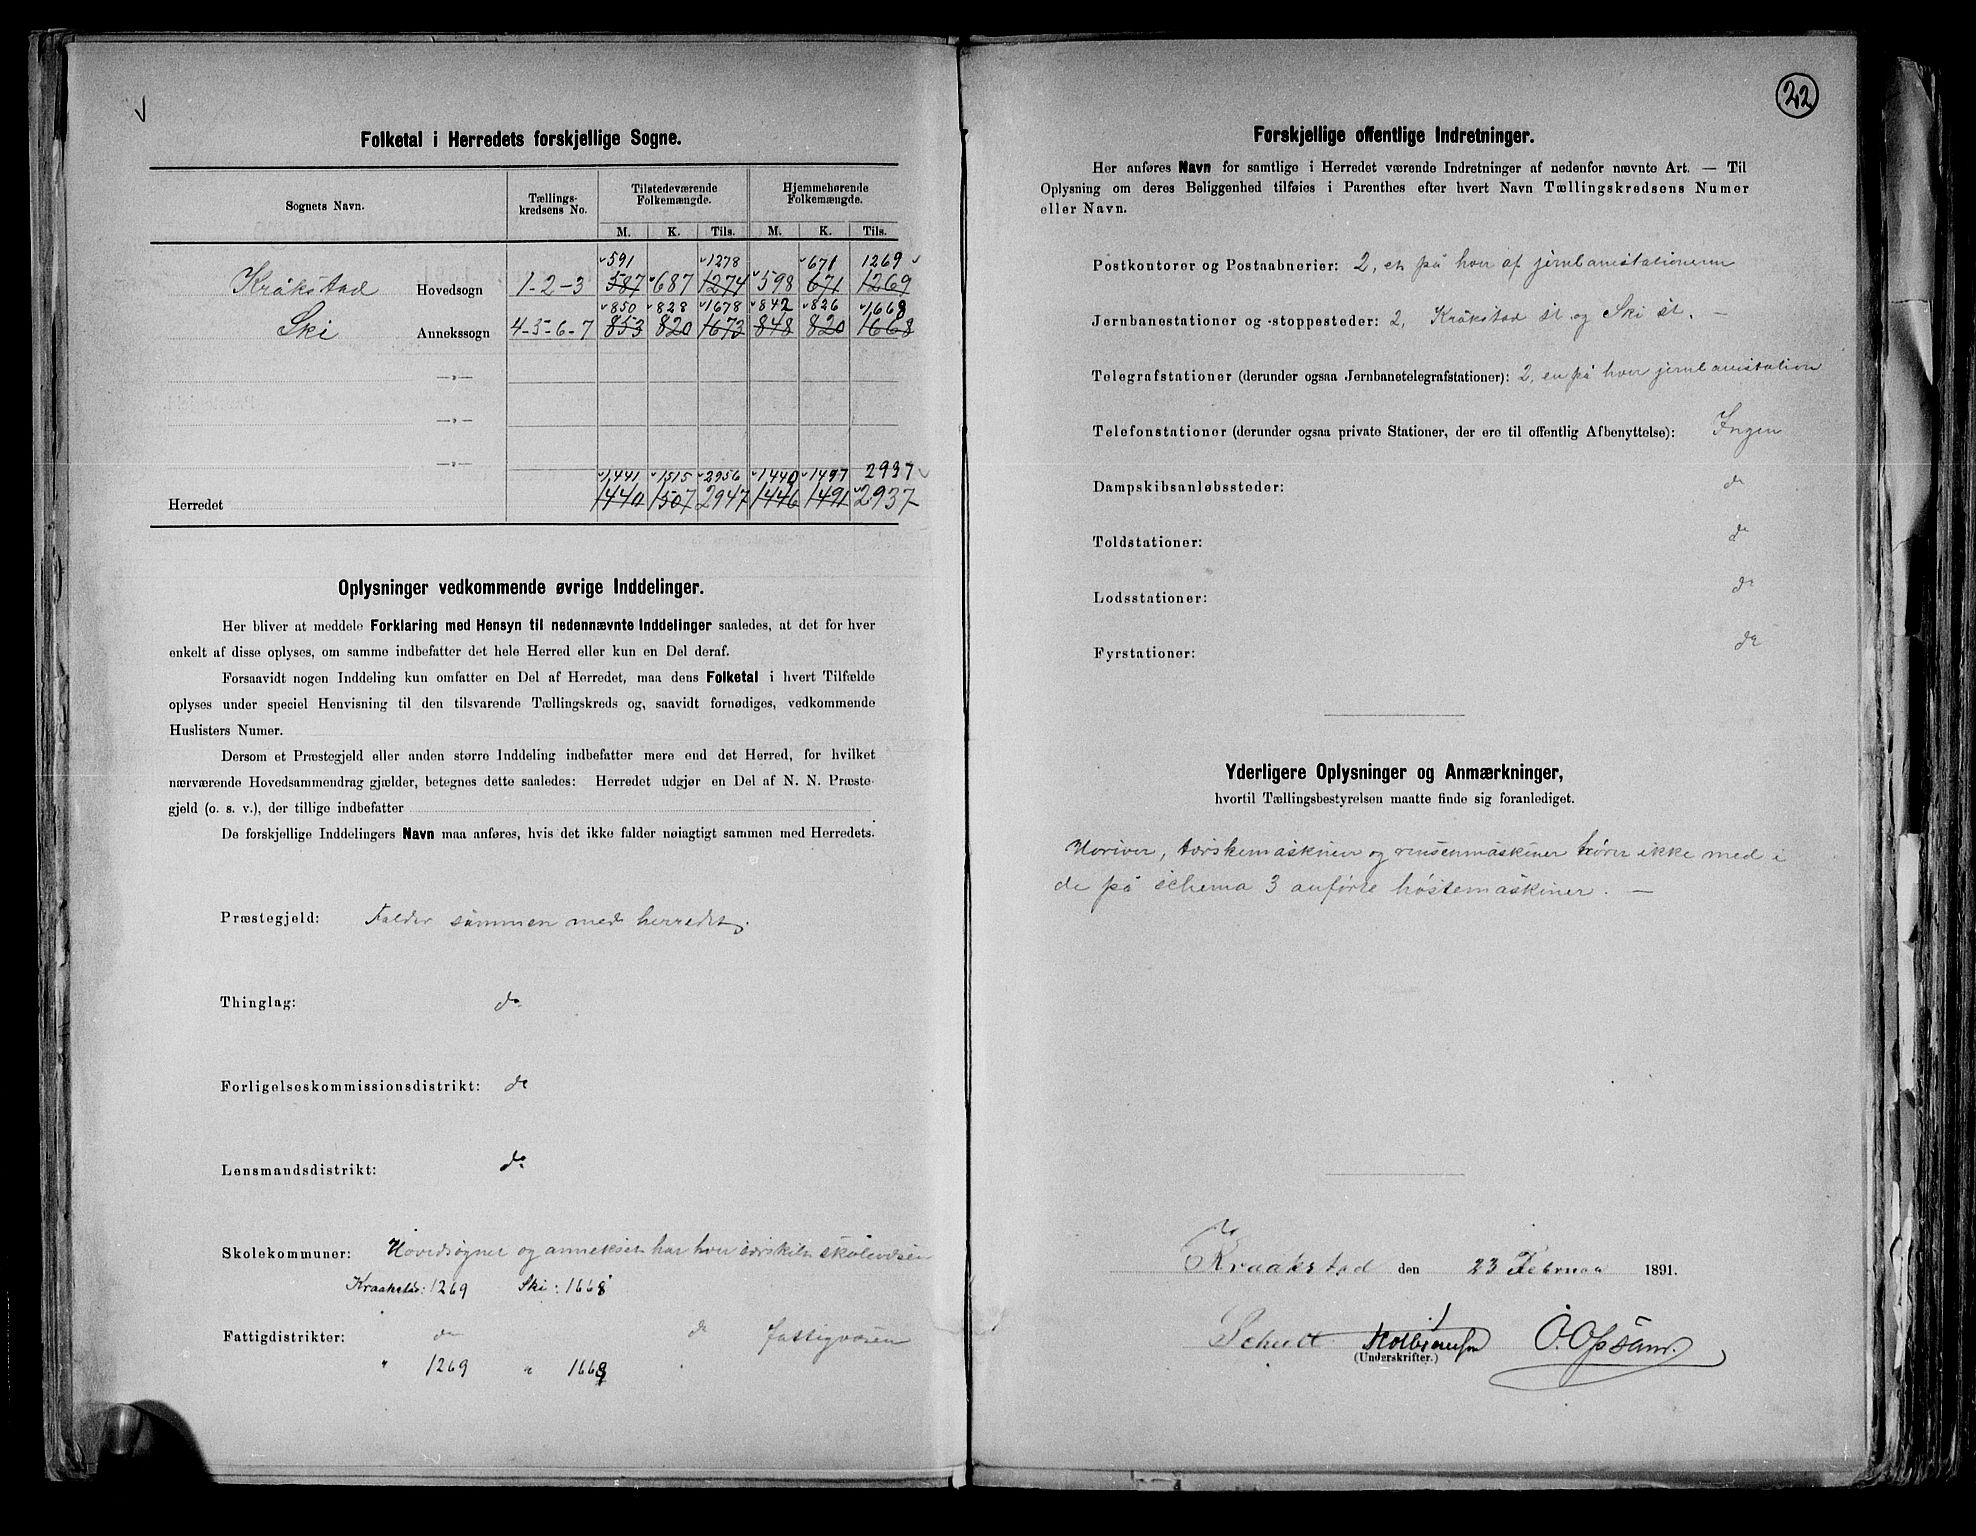 Folketal i Herredets forskjellige Sogne.
Sognets Navn. Tællings-kredsens No. Tilstedeværende Folkemængde. Hjemmehørende Folkemængde.
M. K. Tils. M. K. Tils.
591 1278 671 1269
Kråkstad Hovedsogn 1-2-3 587 687 1274 598 671 1269
850 828 1678 842 826 1,668
Ski Annekssogn 4-5-6-7 853 820 1673 848 820 1668
—„—
—„—
—„—
1,441 1515 2956 1440 1497 2937
Herredet 1440 1507 2947 1446 1491 2937
Oplysninger vedkommende øvrige Inddelinger.
Her bliver at meddele Forklaring med Hensyn til nedennævnte Inddelinger saaledes, at det for hver
enkelt af disse oplyses, om samme indbefatter det hele Herred eller kun en Del deraf.
Forsaavidt nogen Inddeling kun omfatter en Del af Herredet, maa dens Folketal i hvert Tilfælde
oplyses under speciel Henvisning til den tilsvarende Tællingskreds og, saavidt fornødiges, vedkommende
Huslisters Numer.
Dersom et Præstegjeld eller anden større Inddeling indbefatter mere end det Herred, for hvilket
nærværende Hovedsammendrag gjælder, betegnes dette saaledes: Herredet udgjør en Del af N. N. Præste-
gjeld (o. s. v.), der tillige indbefatter
De forskjellige Inddelingers Navn maa anføres, hvis det ikke falder nøiagtigt sammen med Herredets.
Præstegjeld: Falder sammen med herredet.
Thinglag: do
Forligelseskommissionsdistrikt: do
Lensmandsdistrikt: do
Skolekommuner: Hovedsognet og annekset har hver særskilt skolevæsen
Kraakstad: 1269 Ski: 1668
Fattigdistrikter: do do fattigvæsen
„ 1269 „ 1668
22
Forskjellige offentlige Indretninger.
Her anføres Navn for samtlige i Herredet værende Indretninger af nedenfor nævnte Art. — Til
Oplysning om deres Beliggenhed tilføies i Parenthes efter hvert Navn Tællingskredsens Numer
eller Navn.
Postkontorer og Postaabnerier: 2, en på hver af jernbanestationerne
Jernbanestationer og -stoppesteder: 2, Kråkstad st og Ski st. —
Telegrafstationer (derunder ogsaa Jernbanetelegrafstationer): 2, en på hver jernbanestation
Telefonstationer (derunder ogsaa private Stationer, der ere til offentlig Afbenyttelse): Ingen
Dampskibsanløbssteder: do
Toldstationer: do
Lodsstationer: do
Fyrstationer: do
Yderligere Oplysninger og Anmærkninger,
hvortil Tællingsbestyrelsen maatte finde sig foranlediget.
Horiver, tærskemaskiner og rensemaskiner hører ikke med i
de på schema 3 anførte høstemaskiner. —
Kraakstad den 23 Februar 1891.
Schult
(Underskrifter.)